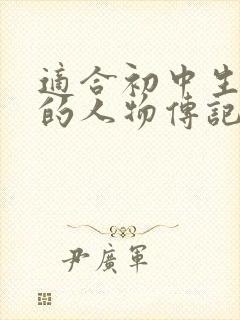 適合初中生
的人物傳記
尹廣軍